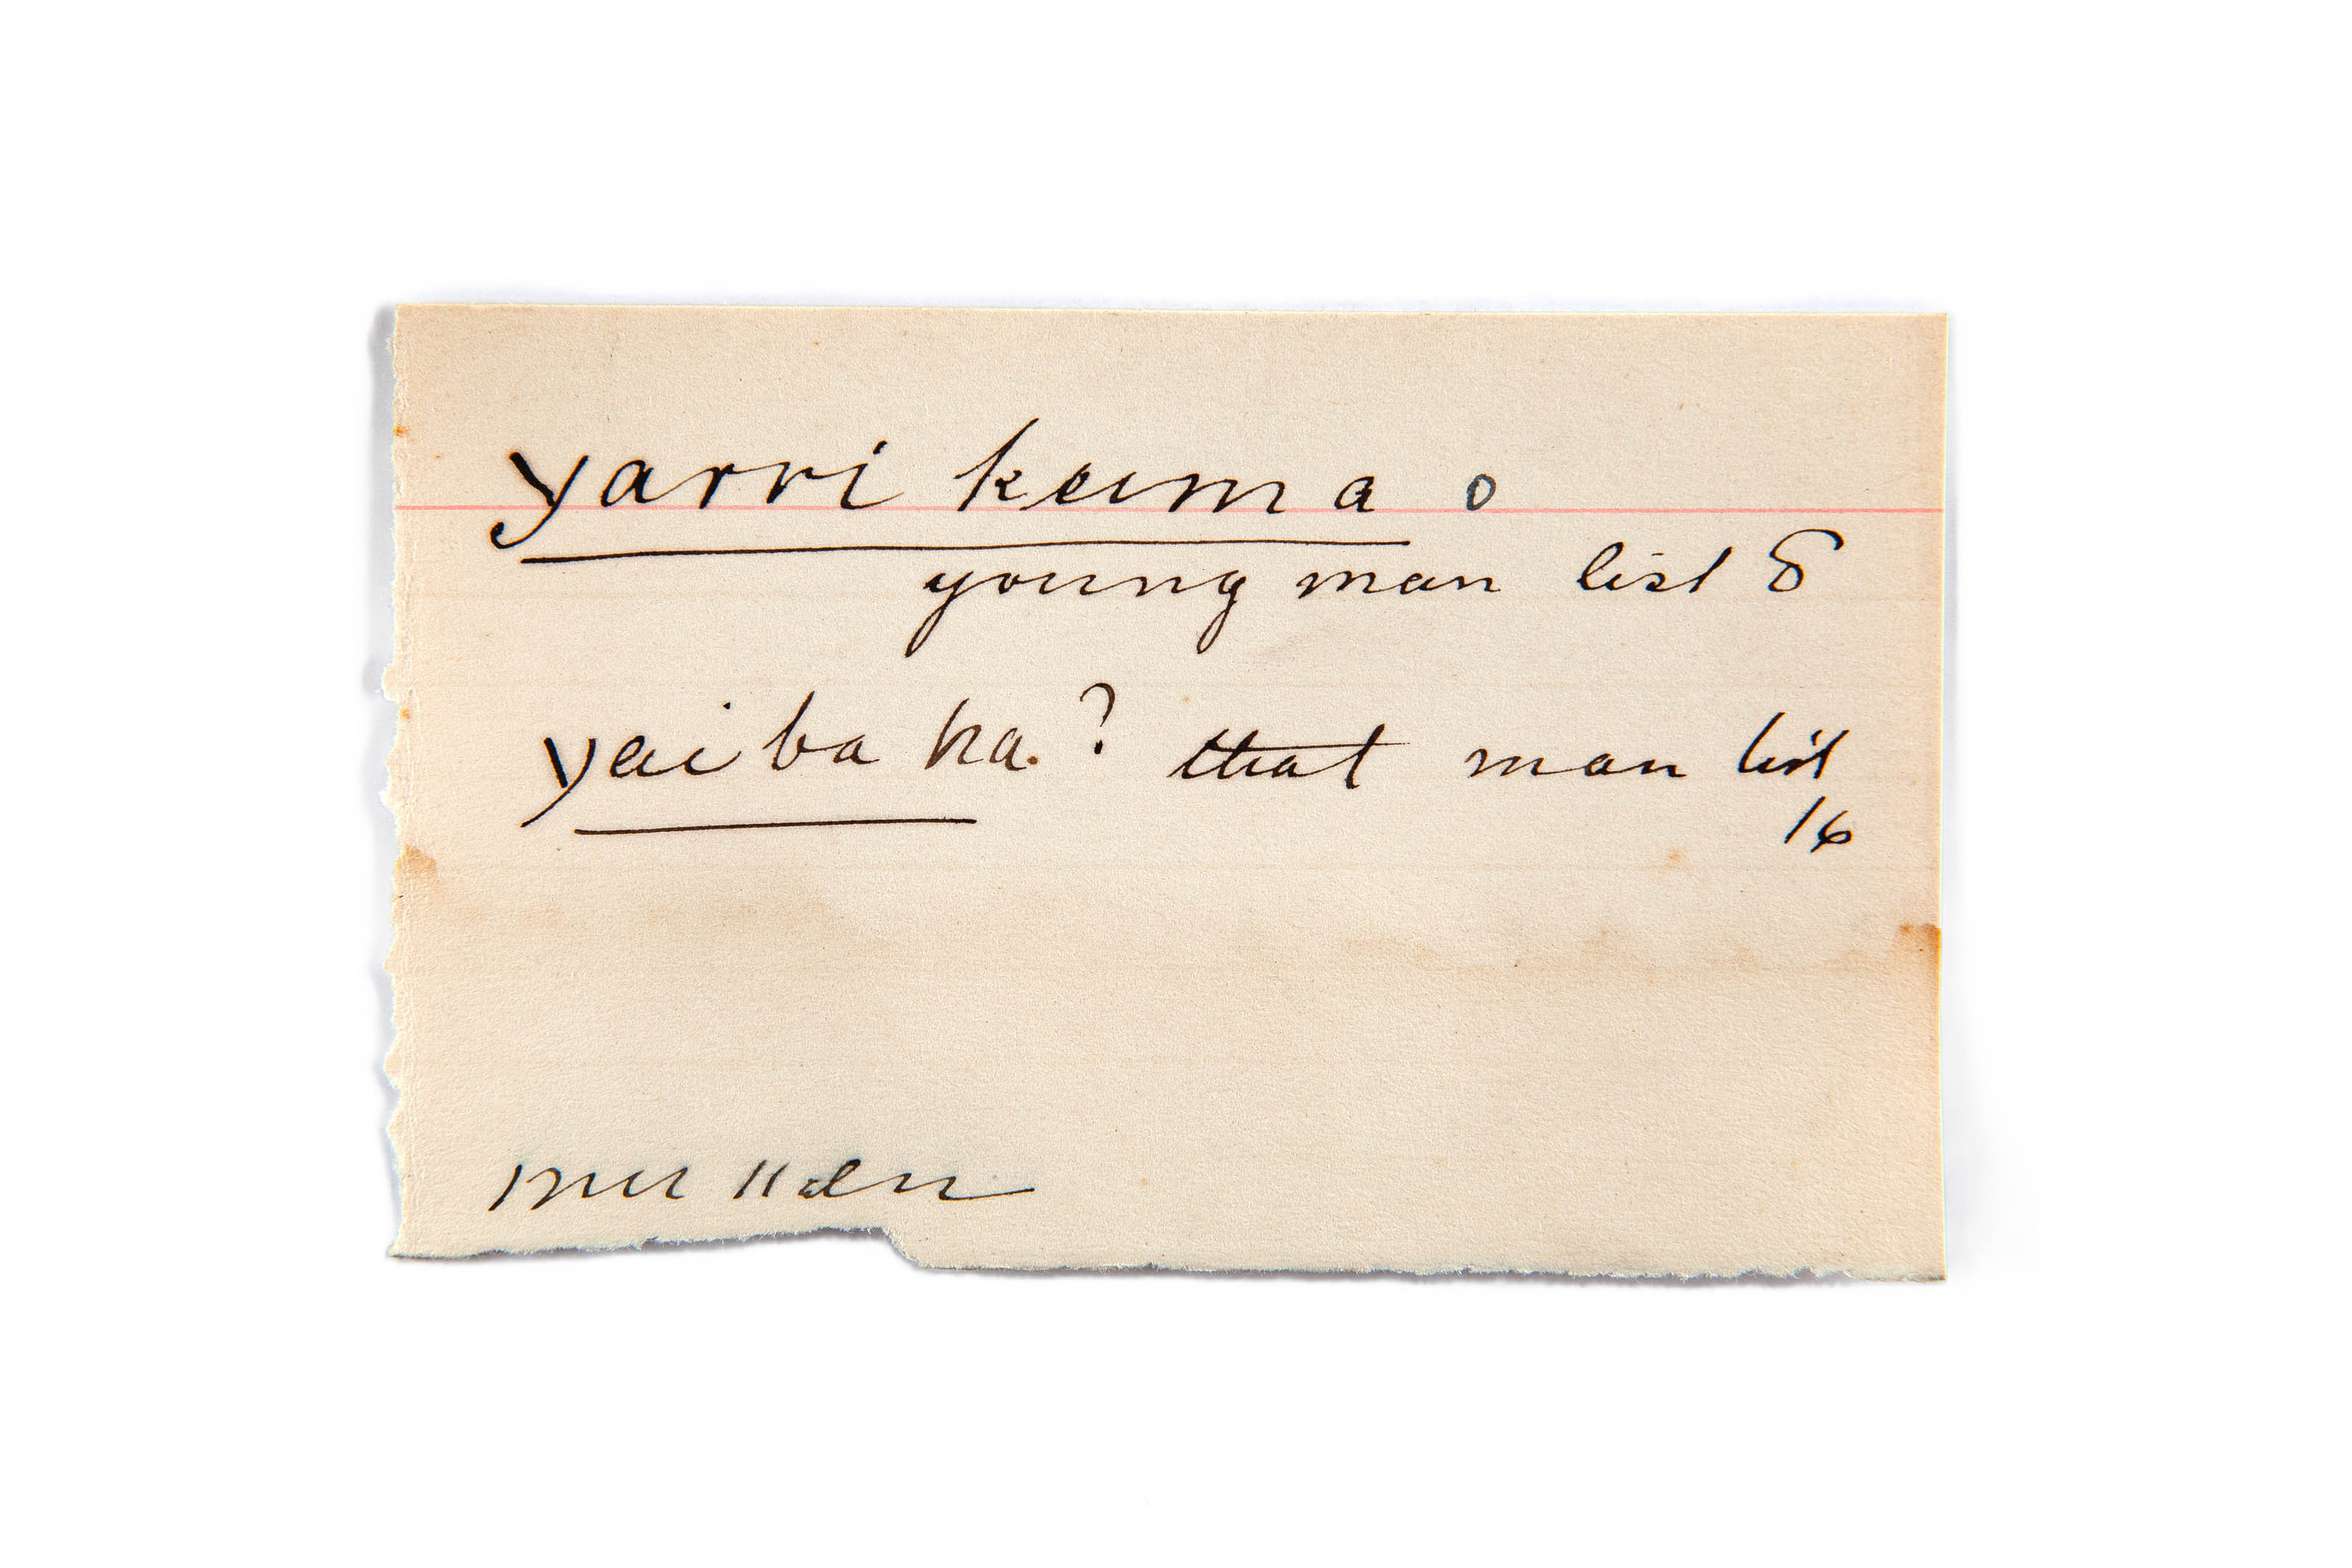 yarri kuma o
young man list 8
yai ba ka. ? that man list
16